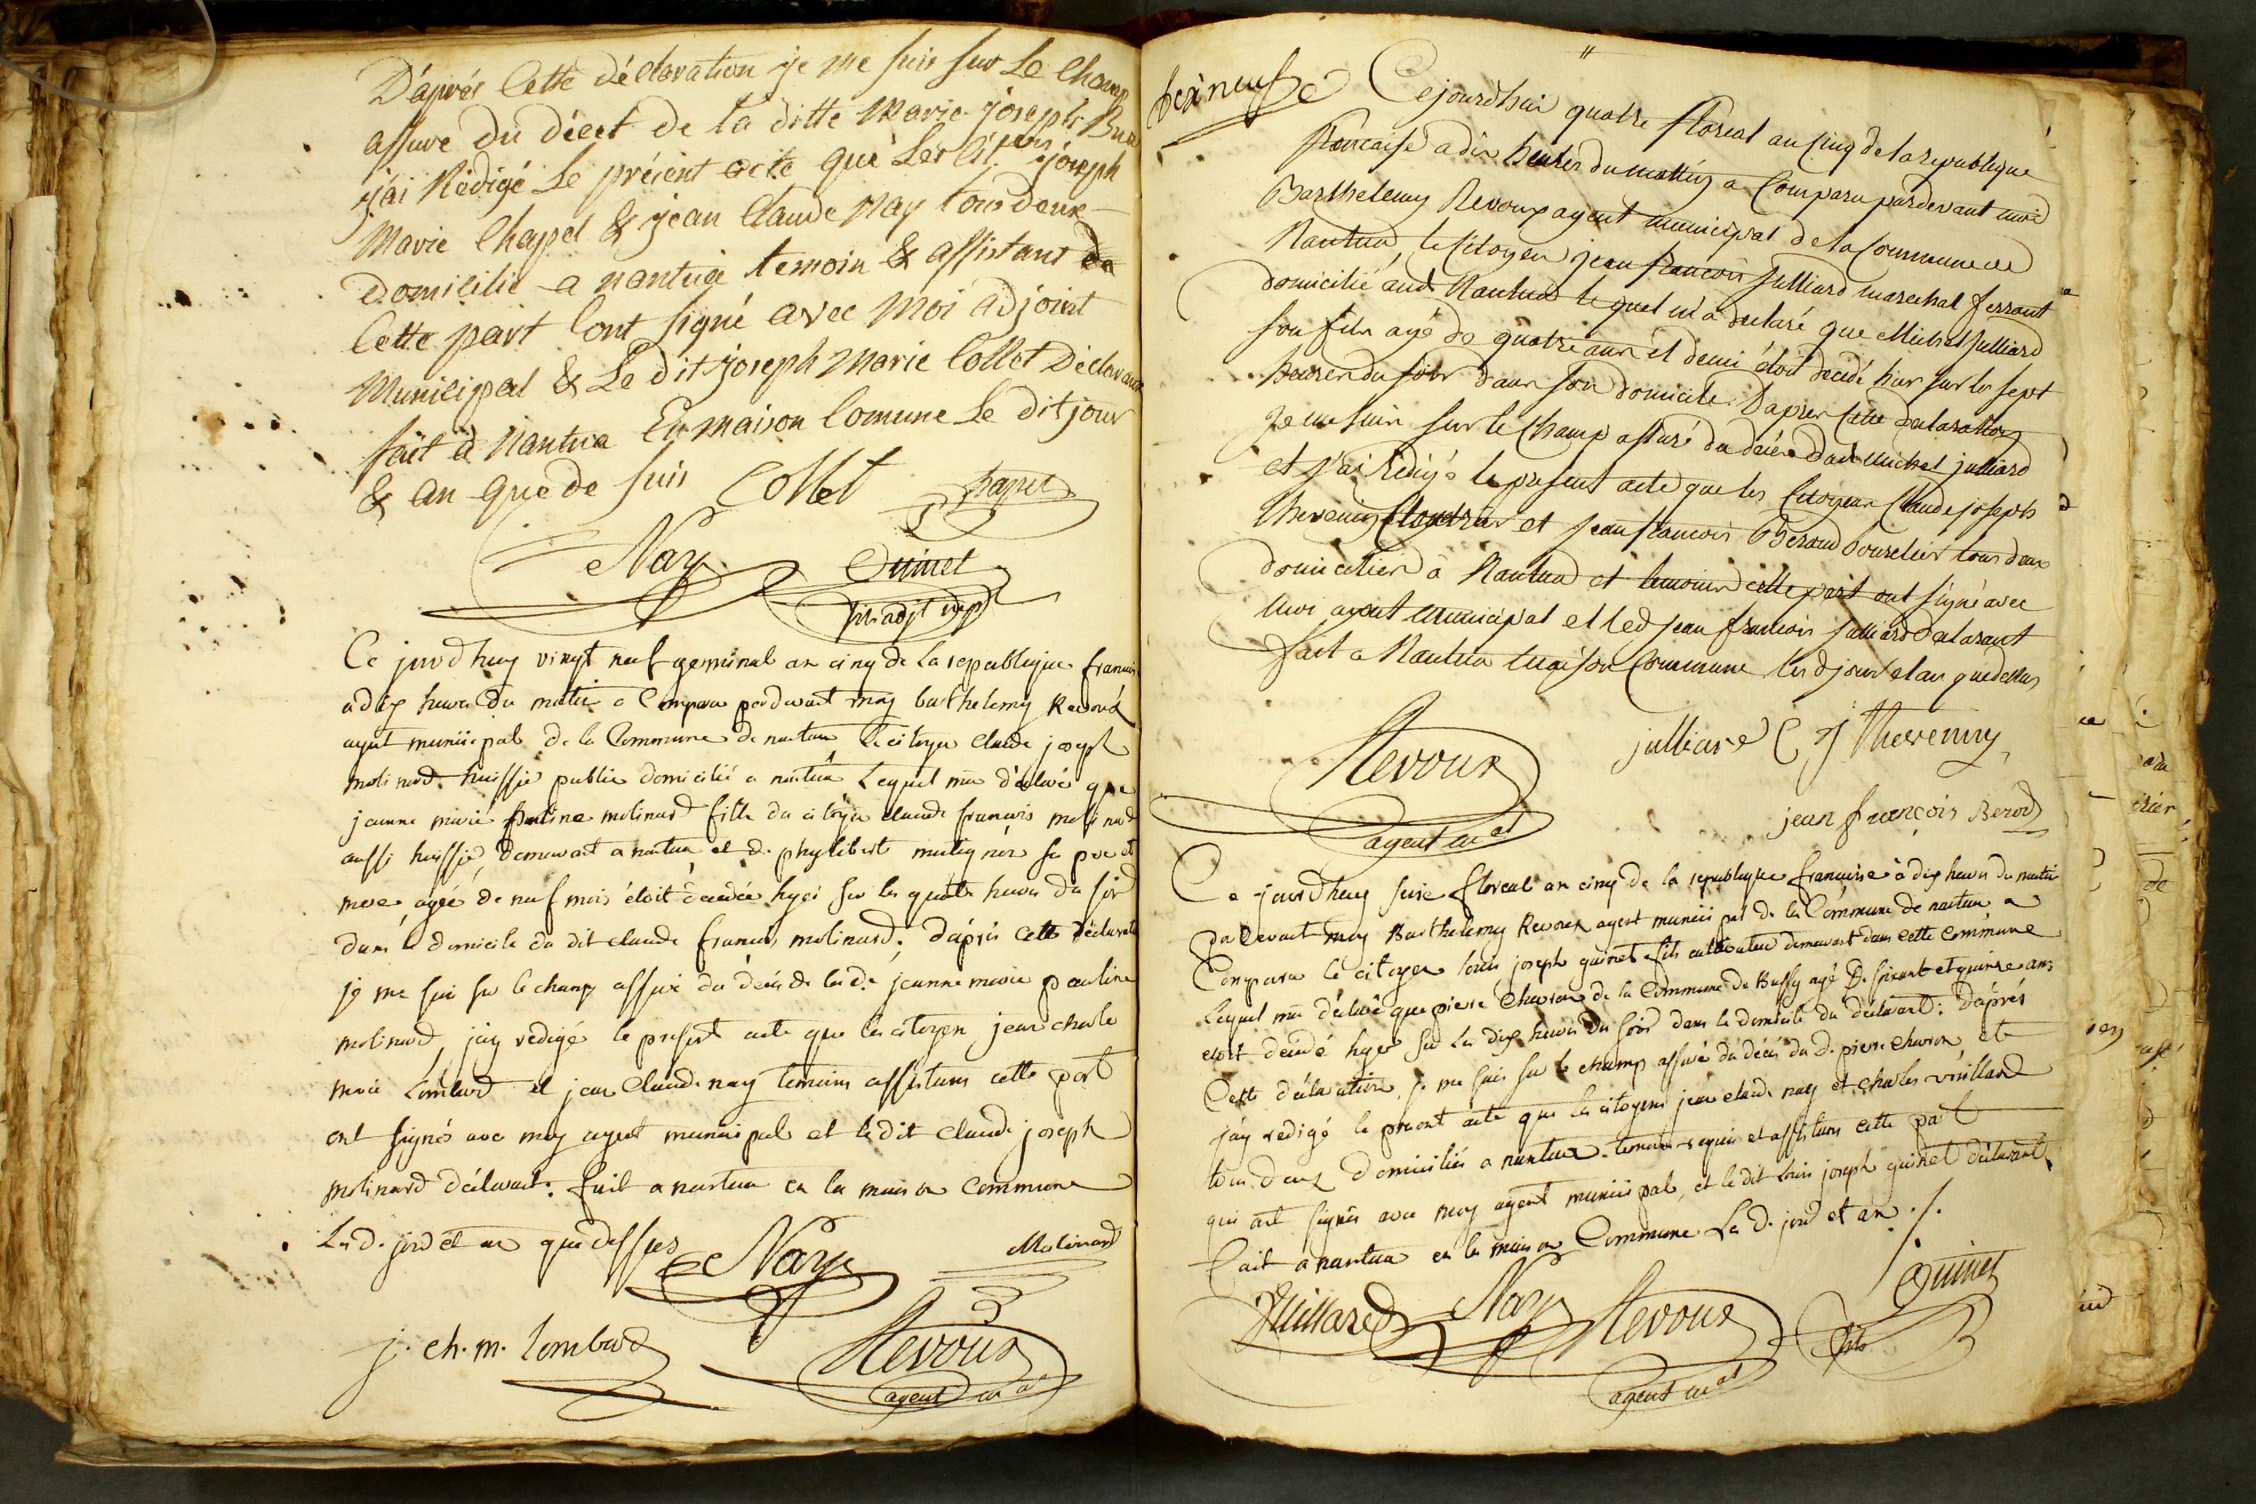 D'aprés Cette déclaration je me suis sur Le Champ
assuré du décet de la ditte Marie joseph
j'ai Rédigé Le présent acte que Les Cit. yens joseph
Marie Chapel & jean Claude Nay tous deux
domicilié a nantua temoin & assistant de
Cette part l'ont signé avec Moi adjoint
Municipal & Le dit joseph Marie Collet Déclarant
fait à Nantua En maison Comune Le dit jour
& an que de suis Collet Chapel
Nay Guinet
fils adjt mpl
Ce jourdhuy vingt neuf germinal an cinq de la republique francaise
a dix heures du matin a Comparu pardevant moy barthelemy Revoux
agent municipal de la Commune de nantua le citoyen claude joseph
molinard huissier public domicilié a nantua Lequel m'a déclaré que
jeanne marie pauline molinard fille du citoyen claude francois molinard
aussi huissier demeurant a nantua et de phylibert sa pere et
mere agée de neuf mois étoit décédée hyer sur les quatre heures du soir
dans le domicile du dit claude francois molinard. d'aprés cette déclaration
je me suis sur le champ assuré du décés de lad. e jeanne marie pauline
molinard, j'ay redigé le present acte que les citoyen jean charle
marie Lombard et jean claude nay temoins assistans cette part
ont signés avec moy agent municipal et le dit claude joseph
molinard déclarant. fait a nantua en la maison commune
Les d. jour et an que dessus
Nay Molinard
j. ch. m. lombard Revoux
agent mal
Cejourdhui quatre floreal an cinq de la republique
francaise a dix heures du mattin a Comparu pardevant moi
Barthelemy Revoux agent municipal de la Commune de
Nantua, le Citoyen jean francois Julliard marechal ferrant
domicilié aud. Nantua le quel m'a declaré que Michel Julliard
son fils agé de quatre ans et demi étoit decédé hier sur les sept
heures du soir dans son domicile. Daprés cette declaration
Je me suis sur le champ assuré du décés dud. Michel julliard
et j'ai rédigé le present acte que les Citoyens Claude joseph
Thevenin et jean francois Beroud bourelier tous deux
domiciliés à Nantua et temoins cette part ont signé avec
moi agent municipal et led. jean francois julliard declarant
fait a Nantua maison Commune lesd jour et an que dessus
Revoux julliard C J Thevenin
agent mal jean françois Berod
Ce jourdhuy seize floreal an cinq de la republique francaise à dix heures du matin
par devant moy Barthelemy Revoux agent municipal de la Commune de nantua a
Comparu le citoyen louis joseph guinet fils cultivateur demeurant dans cette commune
Lequel m'a déclaré que pierre Charon de la Commune de Bussy agé de soixante et quinze ans
etoit decédé hyer sur les dix heures du soir dans le domicile du déclarant. d'aprés
Cette déclaration, je me suis sur le champ assuré du décés du d. pierre charon et
j'ay redigé le present acte que les citoyens jean claude nay et charles vuillard
tous deux domiciliés a nantua temoins requis et assistans cette part
qui ont signés avec moy agent municipal, et le dit louis joseph guinet déclarant
fait a nantua en la maison Commune Les d. jour et an ./.
Vuillard Nay Revoux Guinet
agent mal fils